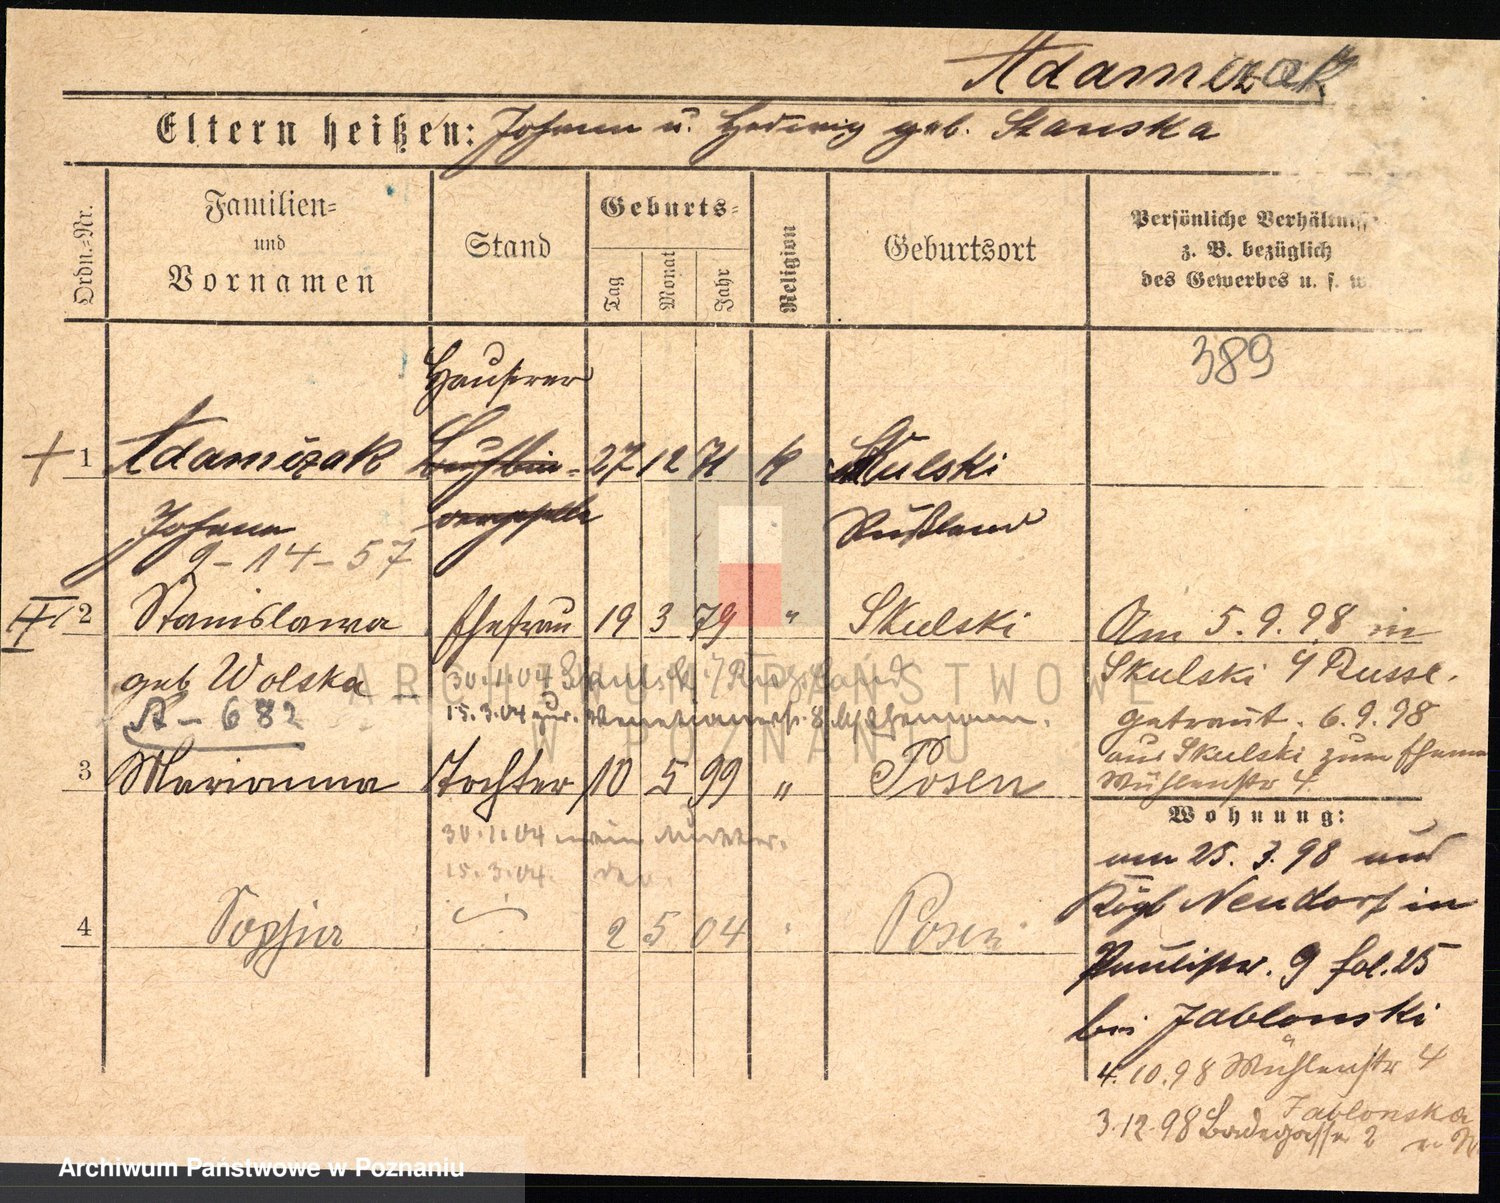 Adamczak
Eltern heißen: Johann u. Hedwig geb. Stanska
Ordn.-Nr.
Familien-
und
Vornamen
Stand
Geburts-
Tag
Monat
Jahr
Religion
Geburtsort
Persönliche Verhältnisse
z. B. bezüglich
des Gewerbes u. s. w.
389
Hausirer
1 Adamczak 27 12 71 K Skulski
Johann Rußland
2-14-57
II 2 Stanislawa Ehefrau 19 3 79 " Skulski
geb Wolska
A - 682
30.1.04 Rußland
15.3.04 zur. Venetianerstr. 8 Ehemann.
3 Marianna Tochter 10 5 99 " Posen
30.1.04 Mutter.
15.3.04.
4 Sophia 2 5 04 " Posen
Am 5.9.98 in
Skulski Russl.
getraut. 6.9.98
aus Skulski zum Ehemann
Mühlenstr 4.
Wohnung:
am 25. 3. 98 aus
Kögl Neudorf in
Paulistr. 9 fol. 25
bei Jablonski
4.10.98 Mühlenstr 4
Jablonska
3.12.98 Badegasse 2
ARCHIWUM PAŃSTWOWE
W POZNANIU
Archiwum Państwowe w Poznaniu